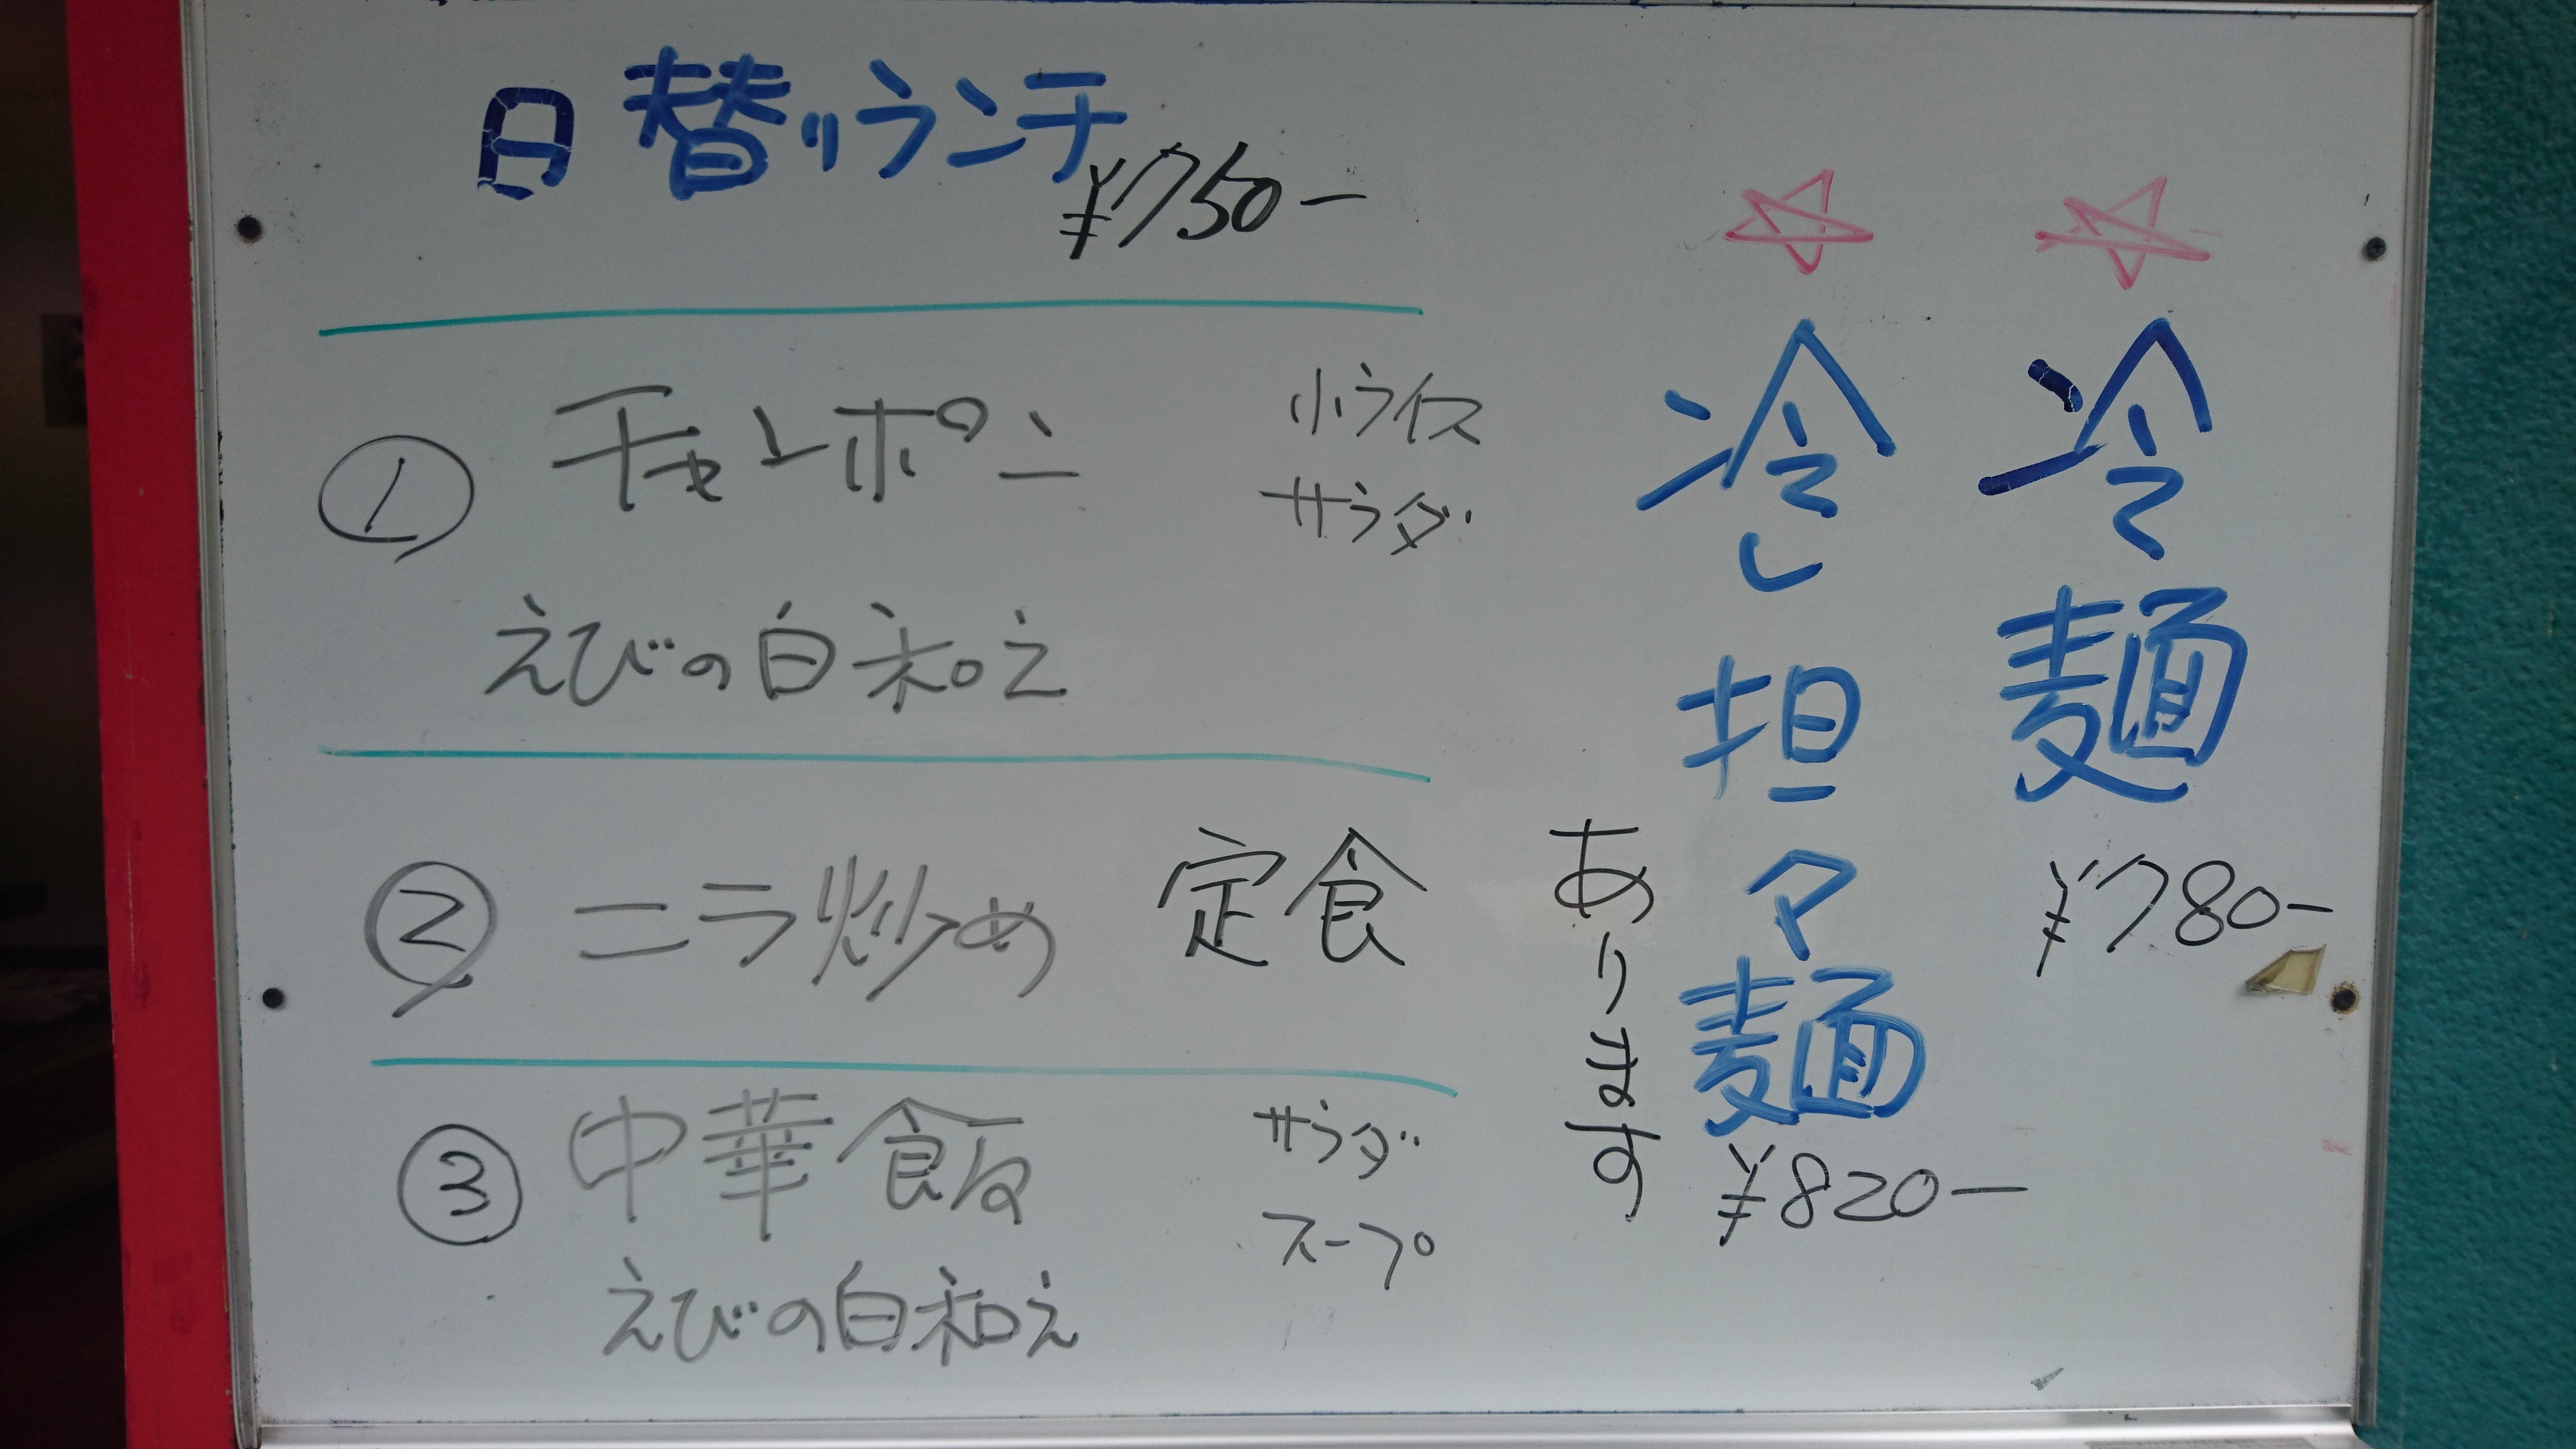 日替りランチ
¥750-
① チャンポン 小ライス
サラダ
えびの白和え
② ニラ炒め 定食
③ 中華飯 サラダ
スープ
えびの白和え
☆冷麺 ¥780-
☆冷し担々麺 ¥820-
あります